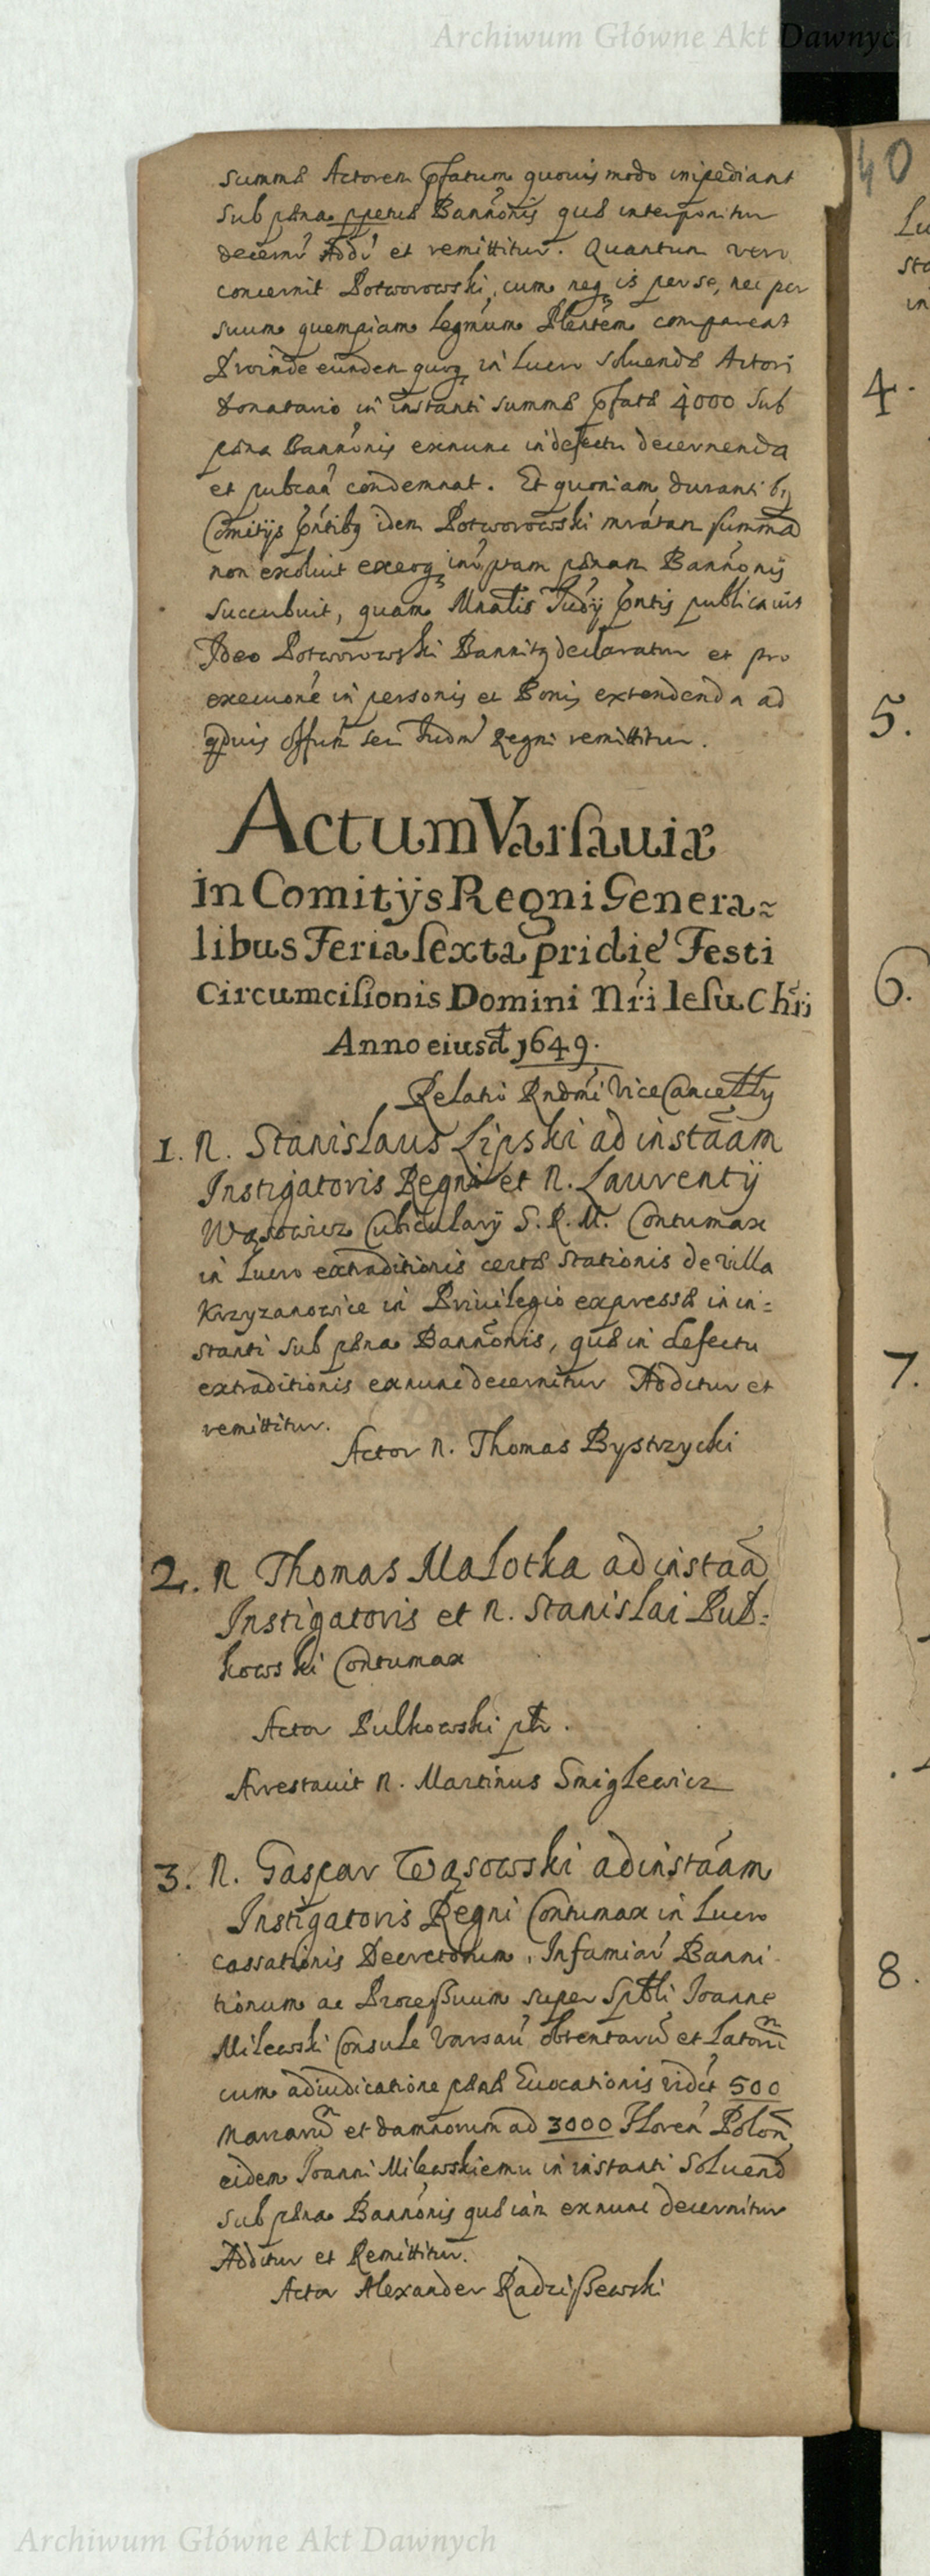 Archiwum Główne Akt Dawnych
40
summæ Actorem pfatum quovis modo impediant
sub pæna ppetuæ Bannónis quæ interponitur
decerní Addí et remittitur. Quantum vero
concernit Potworowski, cum neq is per se, nec per
suum quempiam legmum Plenten̄ compareat
Proinde eundem quoq in lucro solvendæ Actori
Donatario in instanti summæ pfatæ 4000 sub
pæna Bannónis exnunc in defectu decernenda
et publcan condemnat. Et quoniam durantibq
Comitijs pntibq idem Potworowski mratam summā
non exolvit exeoq in pram pænam Bannónis
succubuit, quam Mnalis Judij pntis publicavit
Ideo Potworowski Bannitq declaratur et pro
execuoné in personis et Bonis extendenda ad
qduis Offum seu Judm Regni remittitur.
Actum Varsauiæ
in Comitijs Regni Genera~
libus Feria sexta pridie Festi
Circumcisionis Domini Nri Iesu Chri
Anno eiusd 1649.
Relatio Rndmi ViceCancellrij
1. N. Stanislaus Lipski ad instāam
Instigatoris Regni et N. Laurentij
Wąsowicz Cubicularij S. R. M. Contumax
in lucro extraditionis certæ stationis de villa
Krzyzanowice in Privilegio expressæ in in=
stanti sub pæna Bannónis, quæ in defectu
extraditionis exnunc decernitur Additur et
remittitur.
Actor N. Thomas Bystrzycki
2. N Thomas Malotka ad instaā
Instigatoris et N. Stanislai Bul=
kowski Contumax
Actor Bulkowski ptr.
Arrestavit N. Martinus Smiglewicz
3. N. Gaspar Wąsowski ad instāam
Instigatoris Regni Contumax in lucro
cassationis Decretorum, Infamiar Banni
tionum ac Processuum super Sptbli Joanne
Milewski Consule Varsau obtentarū et latorū
cum adiudicatione pænæ Evocationis vidēt 500
Marcarū et damnorum ad 3000 Floren Polon
eidem Joanni Milewskiemu in instanti solvend
sub pæna Bannónis quæ iam exnunc decernitur
Additur et Remittitur.
Actor Alexander Radziszewski
4.
5.
6.
7.
8.
Archiwum Główne Akt Dawnych